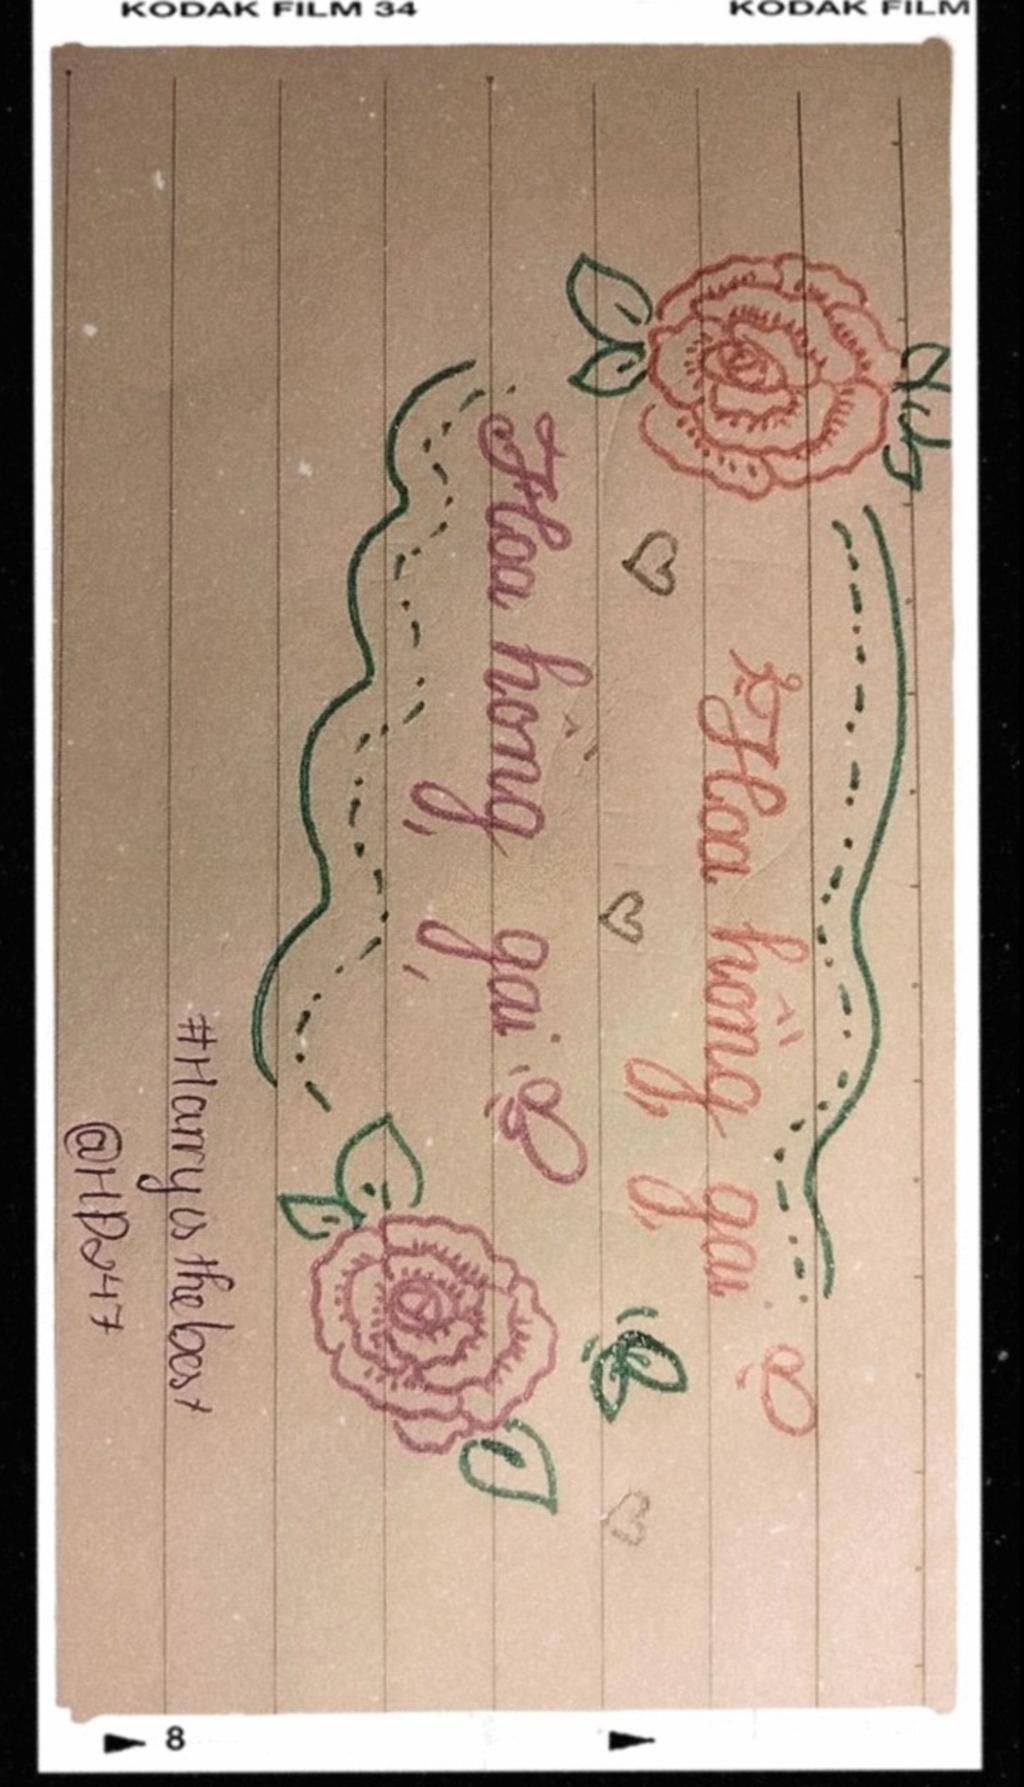 KODAK FILM 34
KODAK FILM
Hoa hồng gai
Hoa hồng gai
#Harry is the best
@HP247
8